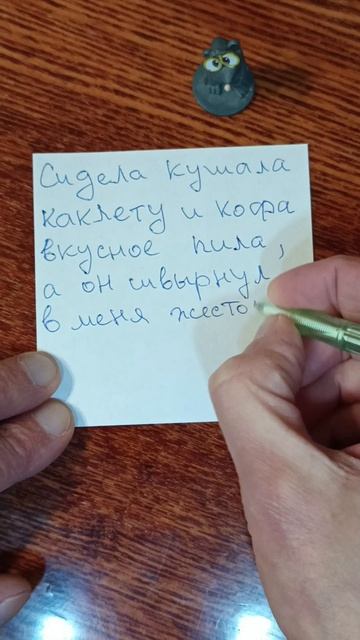 Сидела кушала
каклету и кофа
вкусное пила,
а он швырнул
в меня жесто